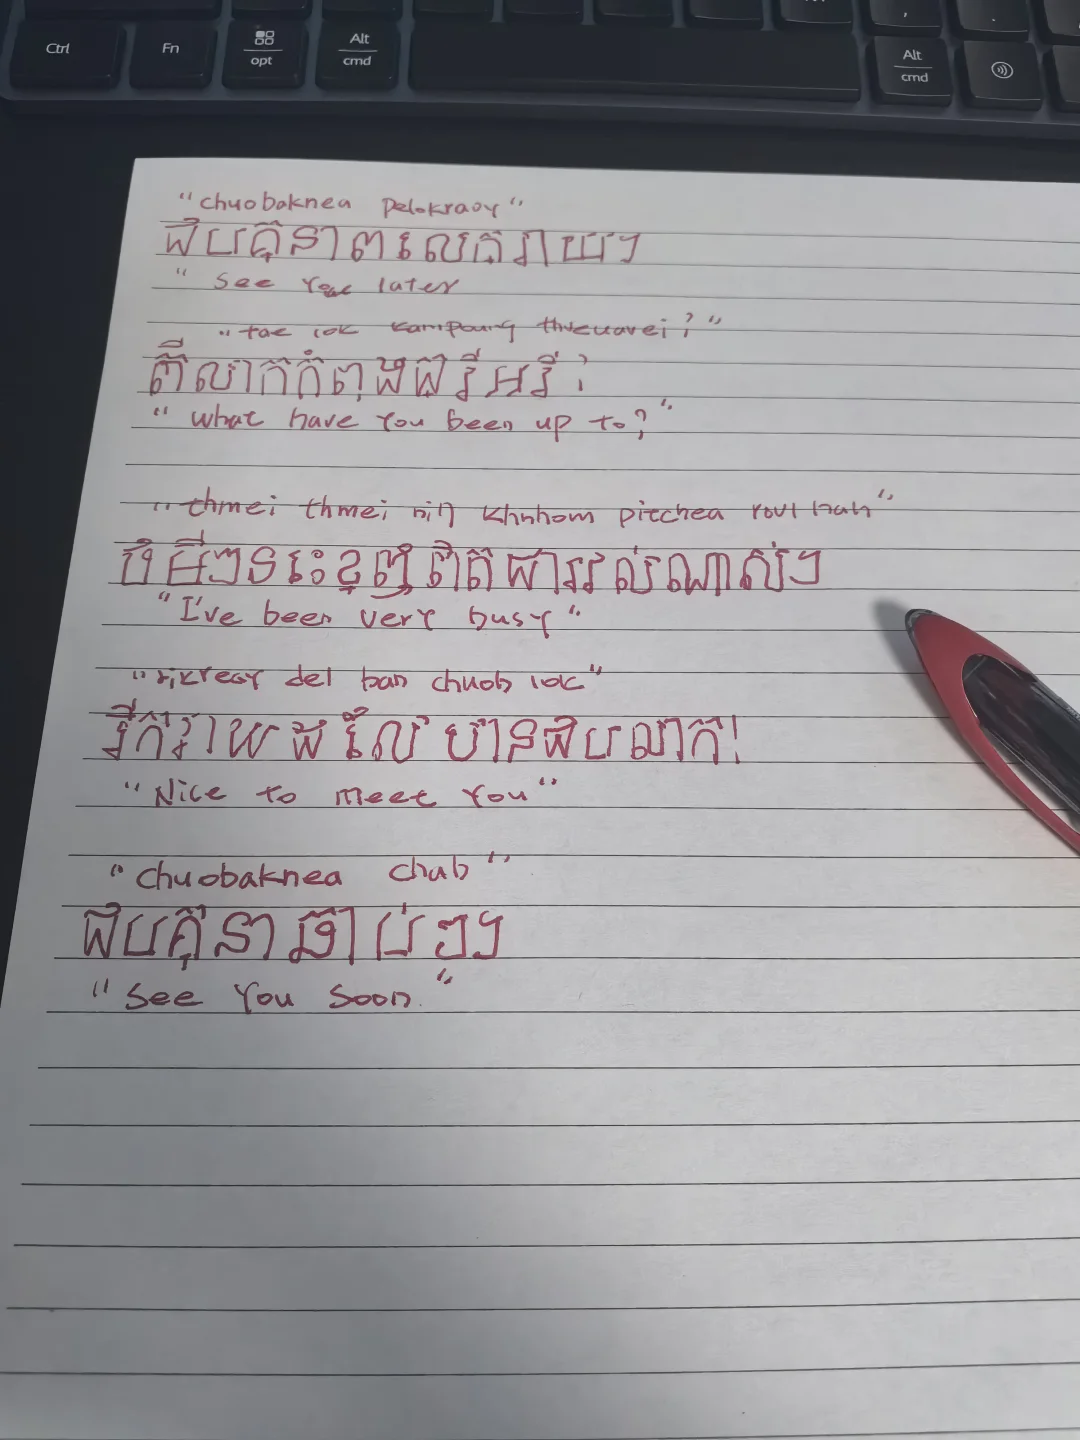 Ctrl Fn opt Alt cmd Alt cmd
"chuobaknea pelokraoy"
ជួបគ្នាពេលក្រោយ។
"See you later
"tae lok kampoung thveuavei?"
តើលោកកំពុងធ្វើអ្វី?
"What have you been up to?"
"thmei thmei nih khnhom pitchea rovl nah"
ថ្មីៗនេះខ្ញុំពិតជារវល់ណាស់។
"I've been very busy"
"rikreay del ban chuob lok"
រីករាយដែលបានជួបលោក!
"Nice to meet you"
"chuobaknea chab"
ជួបគ្នាឆាប់ៗ។
"See you soon."